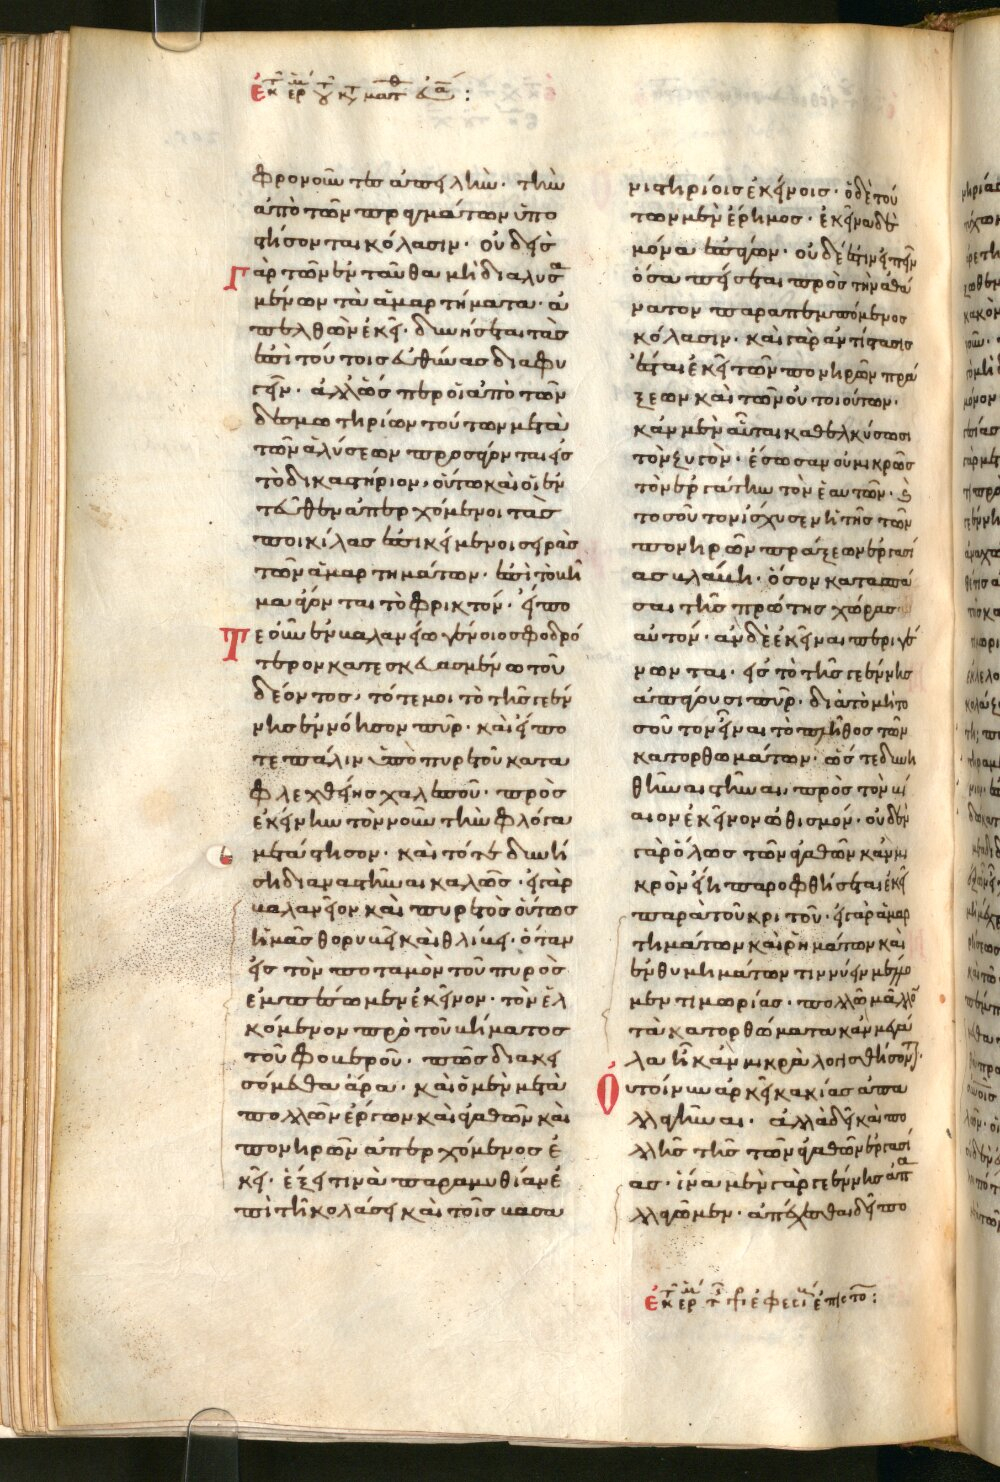 ἐκ τ ερμ τ κτ ματθ
φρονοῦντες ἀπειλὴν· τὴν
ἀπὸ τῶν πραγμάτων ὑπο
στήσονται κόλασιν· οὐδεὶς
γὰρ τῶν ἐνταῦθα μὴ διαλυσα
μένων τὰ ἁμαρτήματα· ἀ
πελθὼν ἐκεῖ· δυνήσεται τὰς
ἐπὶ τούτοις εὐθύνας διαφυ
γεῖν· ἀλλ' ὥσπερ οἱ ἀπὸ τῶν
δεσμωτηρίων τούτων μετὰ
τῶν ἁλύσεων προσάγονται εἰς
τὸ δικαστήριον, οὕτω καὶ οἱ ἐν
τεῦθεν ἀπερχόμενοι τὰς
ποικίλας ἐπικείμενοι σειρὰς
τῶν ἁμαρτημάτων· ἐπὶ τὸ βῆ
μα ἄγονται τὸ φρικτόν· εἴ πο
τε οὖν ἐν βαλανείῳ γένοιο σφοδρό
τερον κατεσκευασμένῳ τοῦ
δέοντος, τότε μοι τὸ τῆς γεέν
νης ἐννόησον πῦρ· καὶ εἴ πο
τε πάλιν ὑπὸ πυρετοῦ κατα
φλεχθείης χαλεποῦ· πρὸς
ἐκείνην τὸν νοῦν τὴν φλόγα
μετάστησον· καὶ τότε δυνή
σῃ διαναστῆναι καλῶς· εἰ γὰρ
βαλανεῖον καὶ πυρετὸς οὕτως
ἡμᾶς θορυβεῖ καὶ θλίβει· ὅταν
εἰς τὸν ποταμὸν τοῦ πυρὸς
ἐμπέσωμεν ἐκεῖνον· τὸν ἑλ
κόμενον πρὸ τοῦ βήματος
τοῦ φοβεροῦ· πῶς διακει
σόμεθα ἄρα· καὶ ὁ μὲν μετὰ
πολλῶν ἔργων καὶ ἀγαθῶν καὶ
πονηρῶν ἀπερχόμενος ἐ
κεῖ· ἕξει τινὰ παραμυθίαν ἐ
πὶ τῇ κολάσει καὶ τοῖς βασα
νιστηρίοις ἐκείνοις· ὁ δὲ τού
των μὲν ἔρημος· ἐκεῖνα δὲ
μόνα ἐπάγων· οὐδέ ἐστιν εἰπεῖν
ὅσα πείσεται πρὸς τὴν ἀθά
νατον παραπεμπόμενος
κόλασιν· καὶ γὰρ ἀντίστασις
ἔσται ἐκεῖ τῶν πονηρῶν πρά
ξεων καὶ τῶν οὐ τοιούτων·
κἂν μὲν αὗται καθελκύσωσι
τὸν ζυγὸν· ἔσωσαν οὐ μικρῶς
τὸν ἐργάτην τὸν ἑαυτῶν·
τοσοῦτον ἴσχυσεν ἡ τῆς τῶν
πονηρῶν πράξεων ἐργασί
ας βλάβη· ὅσον κατασπά
σαι τῆς πρώτης χώρας·
αὐτόν· ἂν δὲ ἐκεῖναι περιγέ
νωνται· εἰς τὸ τῆς γεέννης
ἀπάγουσι πῦρ· διὰ τὸ μὴ το
σοῦτον εἶναι τὸ πλῆθος τῶν
κατορθωμάτων· ὥστε δυνη
θῆναι στῆναι πρὸς τὸν βί
αιον ἐκεῖνον ὠθισμόν· οὐδὲν
γὰρ ὅλως τῶν ἀγαθῶν κἂν μι
κρὸν εἴη παροφθήσεται ἐκεῖ
παρὰ τοῦ κριτοῦ· εἰ γὰρ ἁμαρ
τημάτων καὶ ῥημάτων καὶ
ἐνθυμημάτων τιννύειν μέλλο
μεν τιμωρίας· πολλῷ μᾶλλον
τὰ κατορθώματα κἂν μεγά
λα ᾖ κἂν μικρὰ λογισθήσονται·
οὐ τοίνυν ἀρκεῖ κακίας ἀπα
λλαγῆναι· ἀλλὰ δεῖ καὶ πο
λλῆς τῆς τῶν ἀγαθῶν ἐργασί
ας· ἵνα μὲν γὰρ γεέννης ἀπα
λλαγῶμεν· ἀπέχεσθαι δεῖ πο
ἐκ τ ερμ τ εφεσι επιστο: